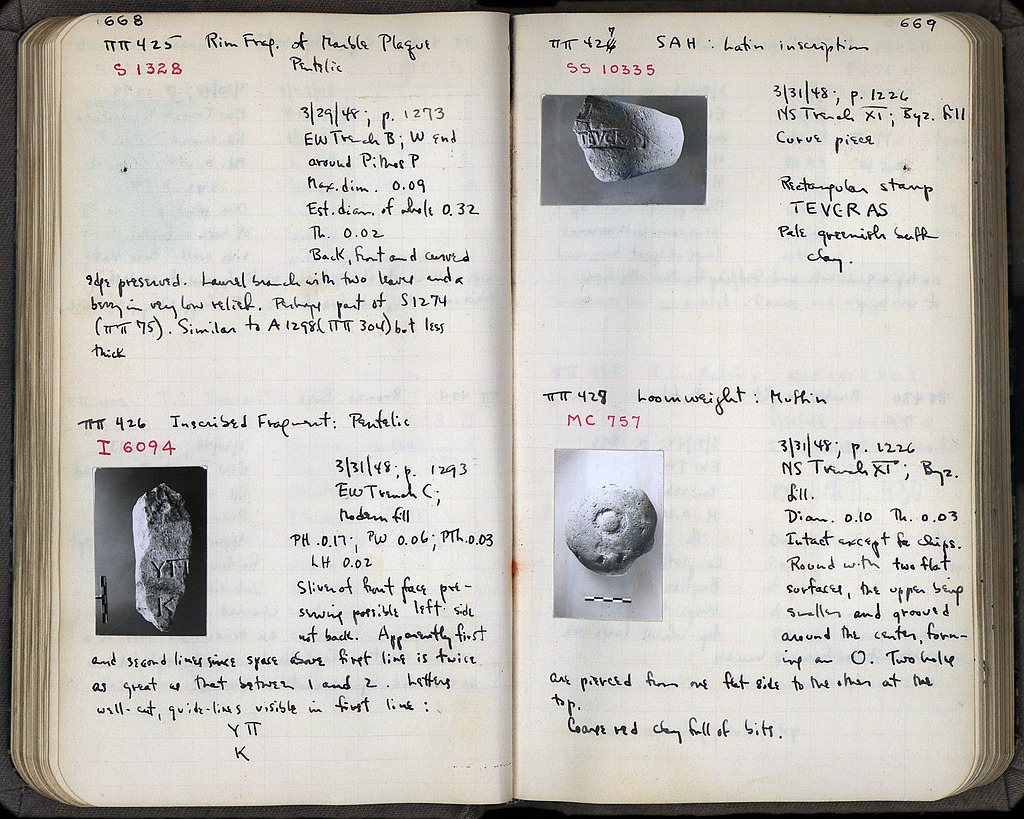 668
ΠΠ 425 Rim Frag. of Marble Plaque
Pentelic
S 1328
3/29/48; p. 1273
EW Trench B; W end
around Pithos P
Max. dim. 0.09
Est. diam. of whole 0.32
Th. 0.02
Back, front and curved
edge preserved. Laurel branch with two leaves and a
berry in very low relief. Perhaps part of S 1274
(ΠΠ 75). Similar to A 1298 (ΠΠ 304) but less
thick
ΠΠ 426 Inscribed Fragment: Pentelic
I 6094
3/31/48; p. 1293
EW Trench C;
Modern fill
PH. 0.17; PW 0.06; PTh. 0.03
LH 0.02
Sliver of front face pre-
serving possible left side
not back. Apparently first
and second lines since space above first line is twice
as great as that between 1 and 2. Letters
well-cut, guide-lines visible in first line:
ΥΠ
Κ
ΥΠ
Κ
669
ΠΠ 427 SAH: Latin inscription
SS 10335
3/31/48; p. 1226
NS Trench XI; Byz. fill
Curve piece
Rectangular stamp
TEVERAS
Pale greenish buff
clay.
TEVERAS
ΠΠ 428 Loomweight: Muffin
MC 757
3/31/48; p. 1226
NS Trench XI; Byz.
fill.
Diam. 0.10 Th. 0.03
Intact except for chips.
Round with two flat
surfaces, the upper being
smaller and grooved
around the center, form-
ing an O. Two holes
are pierced from one flat side to the other at the
top.
Coarse red clay full of bits.